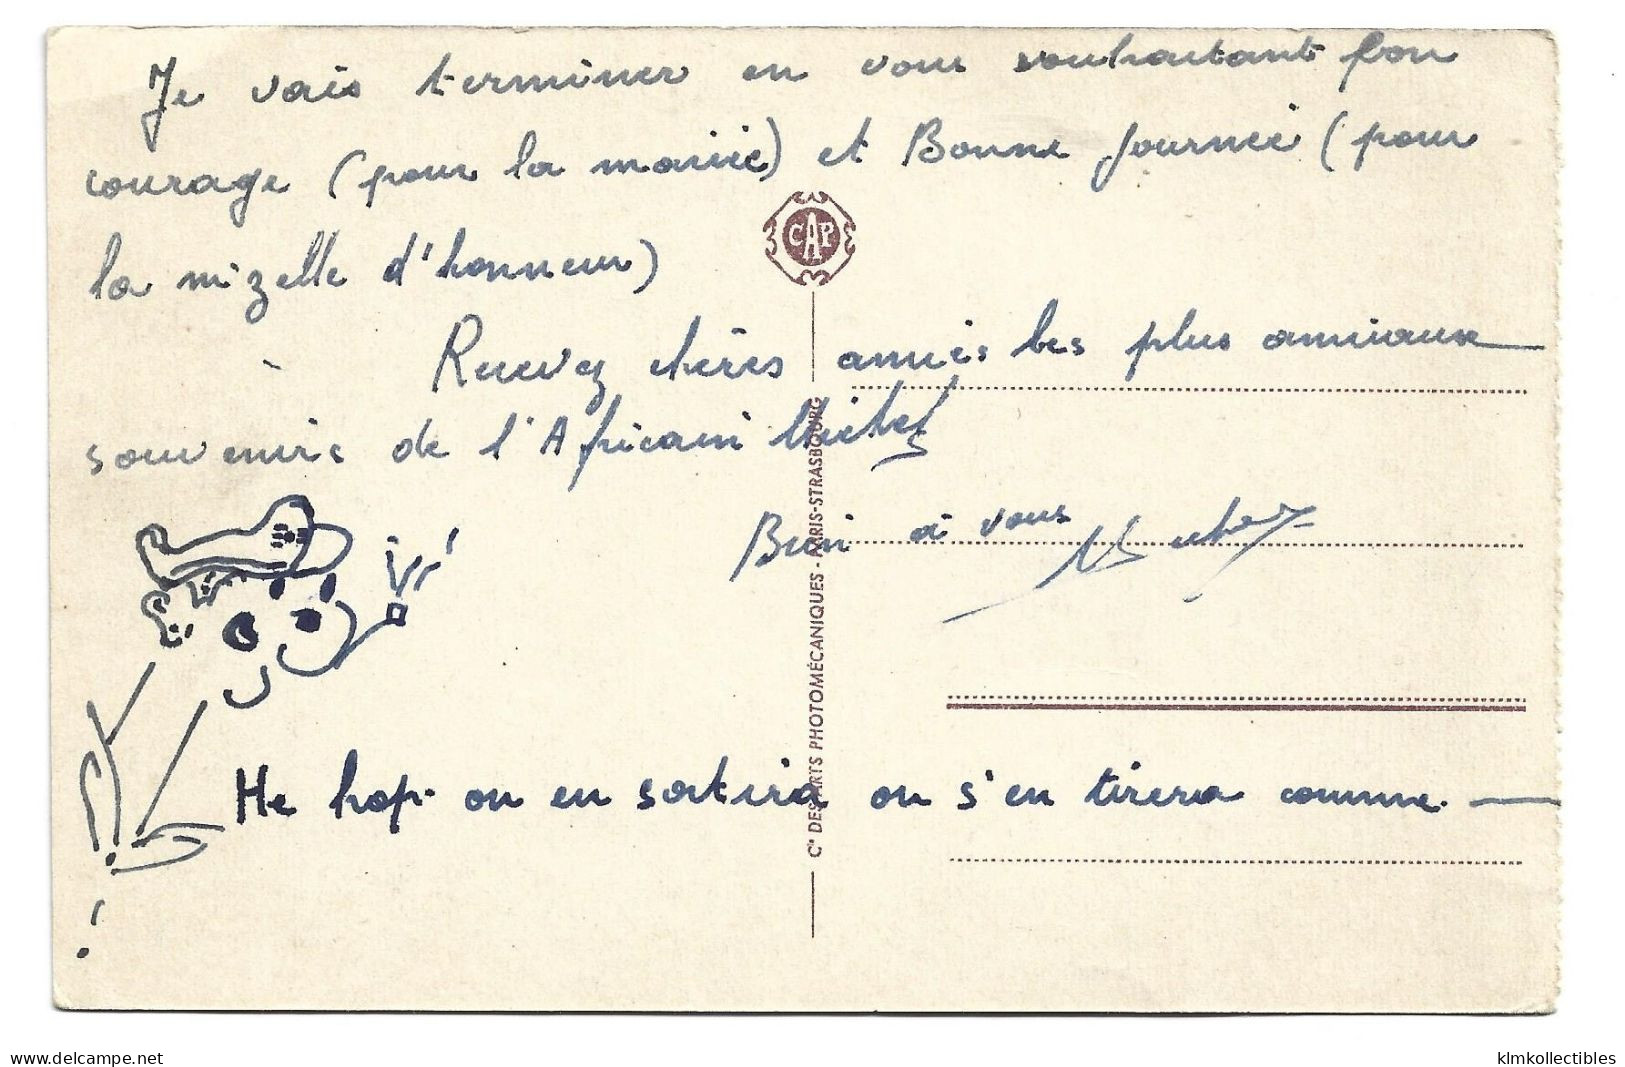 Je vais terminer en vous souhaitant bon
courage (pour la mariée) et Bonne Journée (pour
la mizelle d'honneur)
CAP
Recevez chères amies les plus amicaux
souvenirs de l'Africain Michel
Bien à vous
He hop on en sortira on s'en tirera comme.
Cie DES ARTS PHOTOMÉCANIQUES - PARIS-STRASBOURG
www.delcampe.net
klmkollectibles